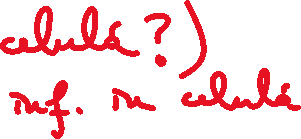 celulă?)
inf. în celulă